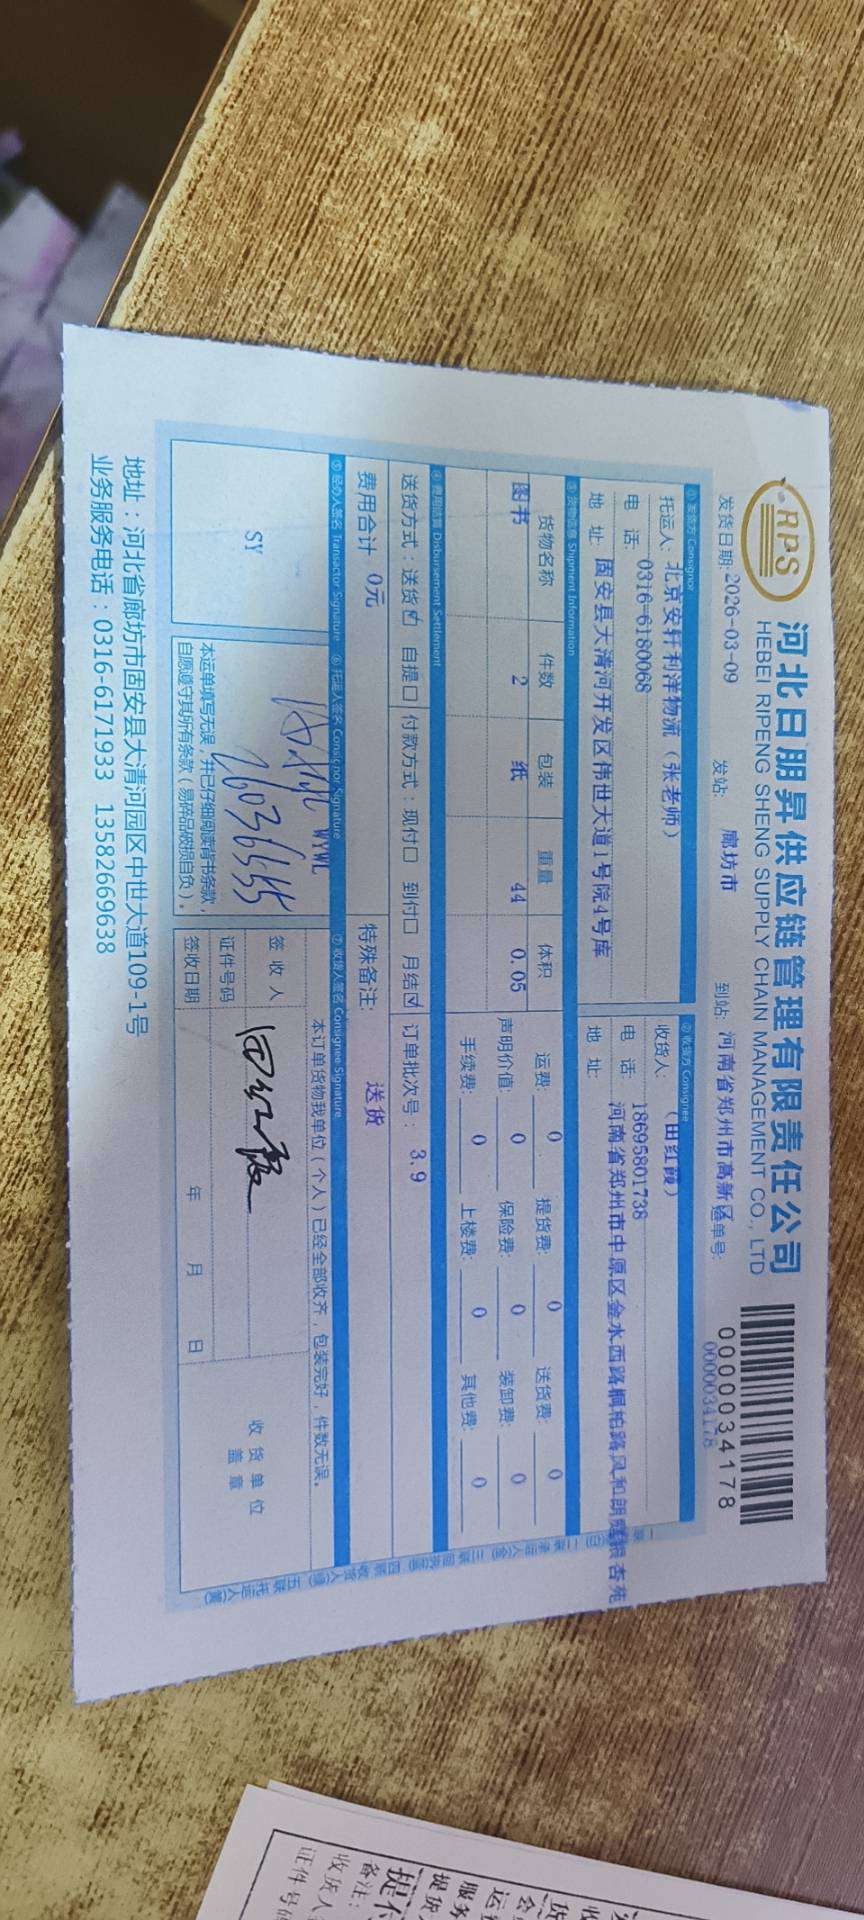 RPS
河北日朋昇供应链管理有限责任公司
HEBEI RIPENG SHENG SUPPLY CHAIN MANAGEMENT CO., LTD
0000034178
发货日期: 2026-03-09 发站: 廊坊市 到站: 河南省郑州市高新区 运单号: 0000034178
① 发货方 Consignor ② 收货方 Consignee
托运人: 北京安轩利洋物流（张老师） 收货人: （田红霞）
电 话: 0316-6180068 电 话: 18695801738
地 址: 固安县大清河开发区伟世大道1号院4号库 地 址: 河南省郑州市中原区金水西路桐柏路风和朗庭银杏苑
③ 货物信息 Shipment Information
货物名称 件数 包装 重量 体积 运费: 0 提货费: 0 送货费: 0
图书 2 纸 44 0.05 声明价值: 0 保险费: 0 装卸费: 0
手续费: 0 上楼费: 0 其他费: 0
④ 费用结算 Disbursement Settlement
送货方式：送货☑ 自提☐ 付款方式：现付☐ 到付☐ 月结☑ 订单批次号： 3.9
费用合计 0元 特殊备注: 送货
⑤ 经办人签名 Transactor Signature ⑥ 托运人签名 Consignor Signature ⑦ 收货人签名 Consignee Signature
SY
WYWL
本运单填写无误，并已仔细阅读背书条款，
自愿遵守其所有条款（易碎品破损自负）。
本订单货物我单位（个人）已经全部收齐，包装完好，件数无误。
签 收 人 田红霞
证件号码
签收日期 年 月 日
收 货 单 位
盖 章
地址：河北省廊坊市固安县大清河园区中世大道109-1号
业务服务电话：0316-6171933 13582669638